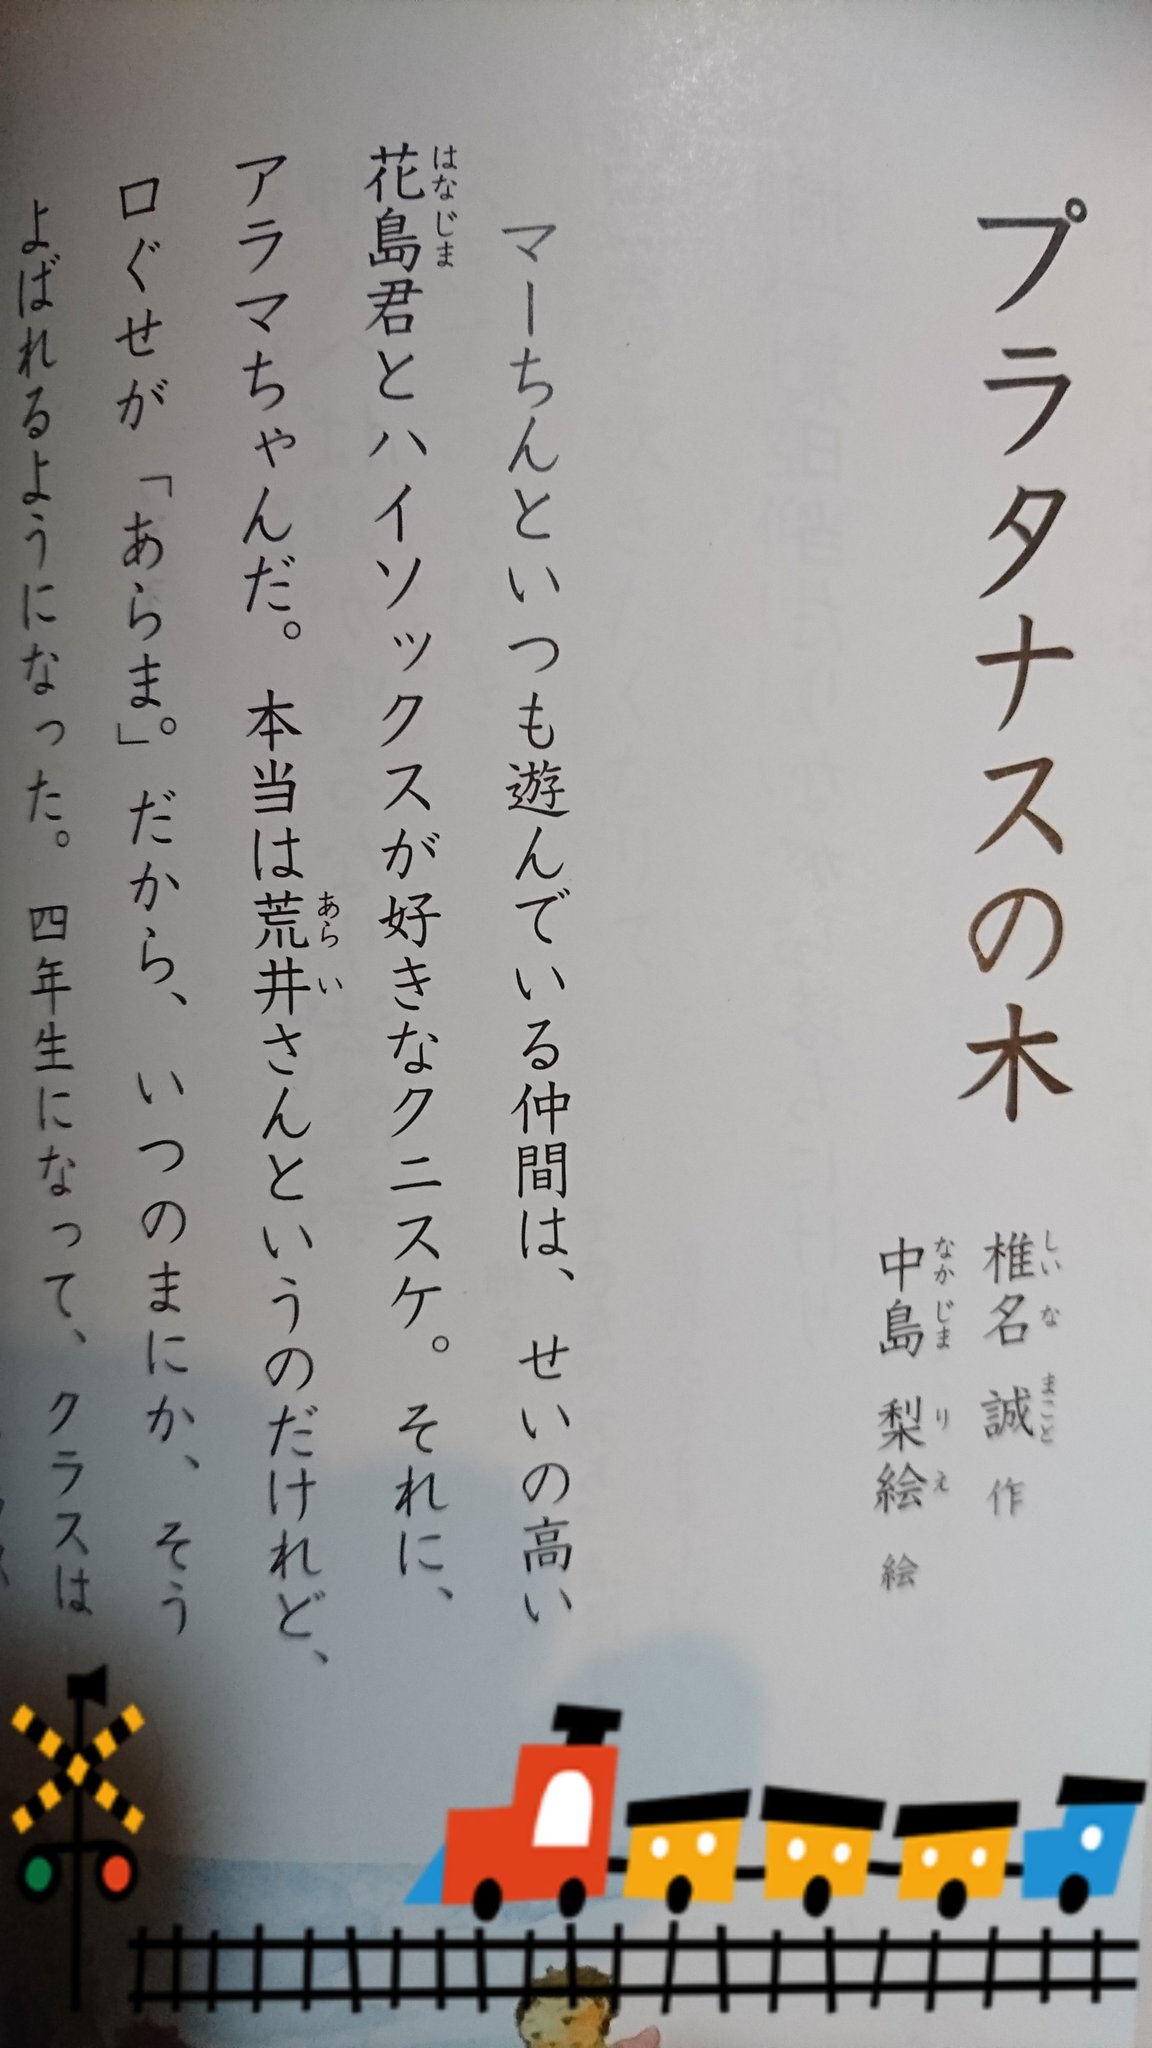 プラタナスの木
椎名 誠 作
しいな まこと
中島 梨絵 絵
なかじま りえ
マーちんといつも遊んでいる仲間は、せいの高い
花島君とハイソックスが好きなクニスケ。それに、
はなじま
アラマちゃんだ。本当は荒井さんというのだけれど、
あらい
口ぐせが「あらま。」だから、いつのまにか、そう
よばれるようになった。四年生になって、クラスは